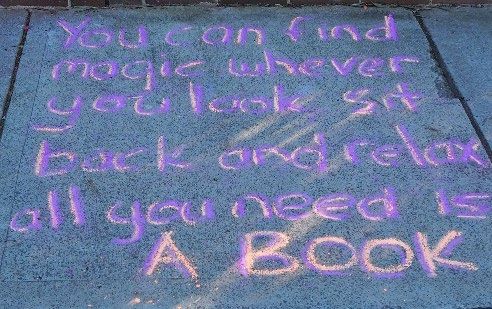 You can find
magic whever
you look sit
back and relax
all you need is
A BOOK